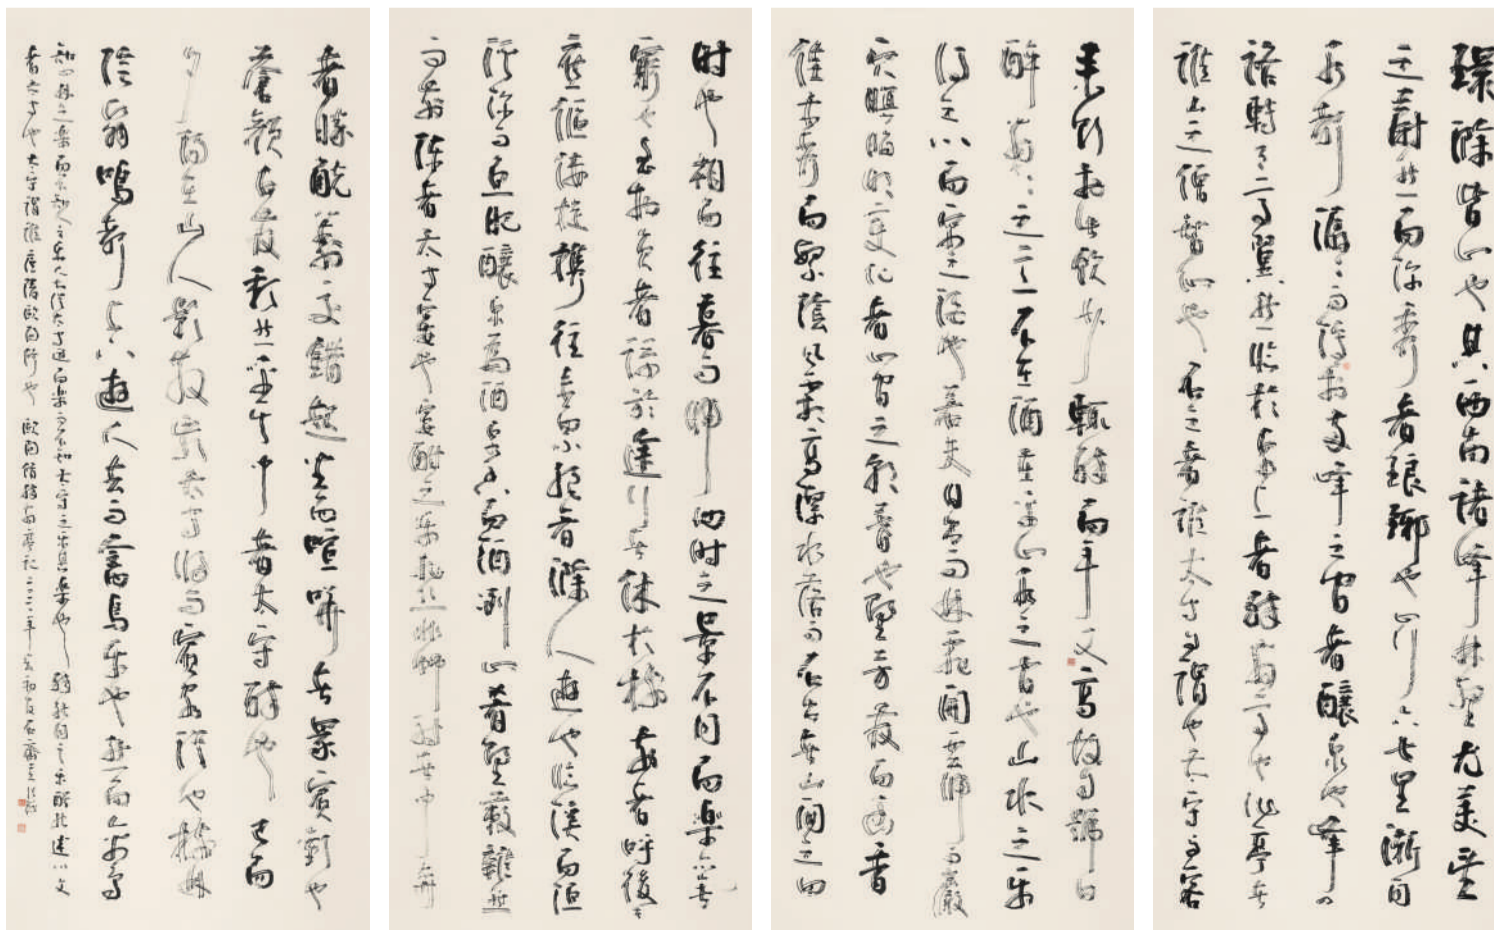 環滁皆山也其西南諸峰林壑尤美望
之蔚然而深秀者琅琊也山行六七里漸聞
水聲潺潺而瀉於兩峰之間者釀泉也峰回
路轉有亭翼然臨於泉上者醉翁亭也作亭者
誰山之僧智仙也名之者誰太守自謂也太守與客
來飲於此飲少輒醉而年又高故自號曰
醉翁翁之意不在酒在乎山水之間也山水之樂
得之心而寓之酒也若夫日出而林霏開雲歸而巖
穴暝晦明變化者山間之朝暮也野芳發而幽香
佳木秀而繁陰風霜高潔水落而石出者山間之四
時也朝而往暮而歸四時之景不同而樂亦無
窮也至於負者謌於途行者休於樹前者呼後者
應傴僂提攜往來而不絕者滁人遊也臨溪而漁
溪深而魚肥釀泉為酒泉香而酒洌山肴野蔌雜然
而前陳者太守宴也宴酣之樂非絲非竹射者中弈
者勝觥籌交錯起坐而喧嘩者眾賓歡也
蒼顏白髮頹然乎其中者太守醉也已而
夕陽在山人影散亂太守歸而賓客從也樹林
陰翳鳴聲上下遊人去而禽鳥樂也然而禽鳥
知山林之樂而不知人之樂人知從太守遊而樂而不知太守之樂其樂也醉能同其樂醒能述以文
者太守也太守謂誰廬陵歐陽修也 歐陽修醉翁亭記